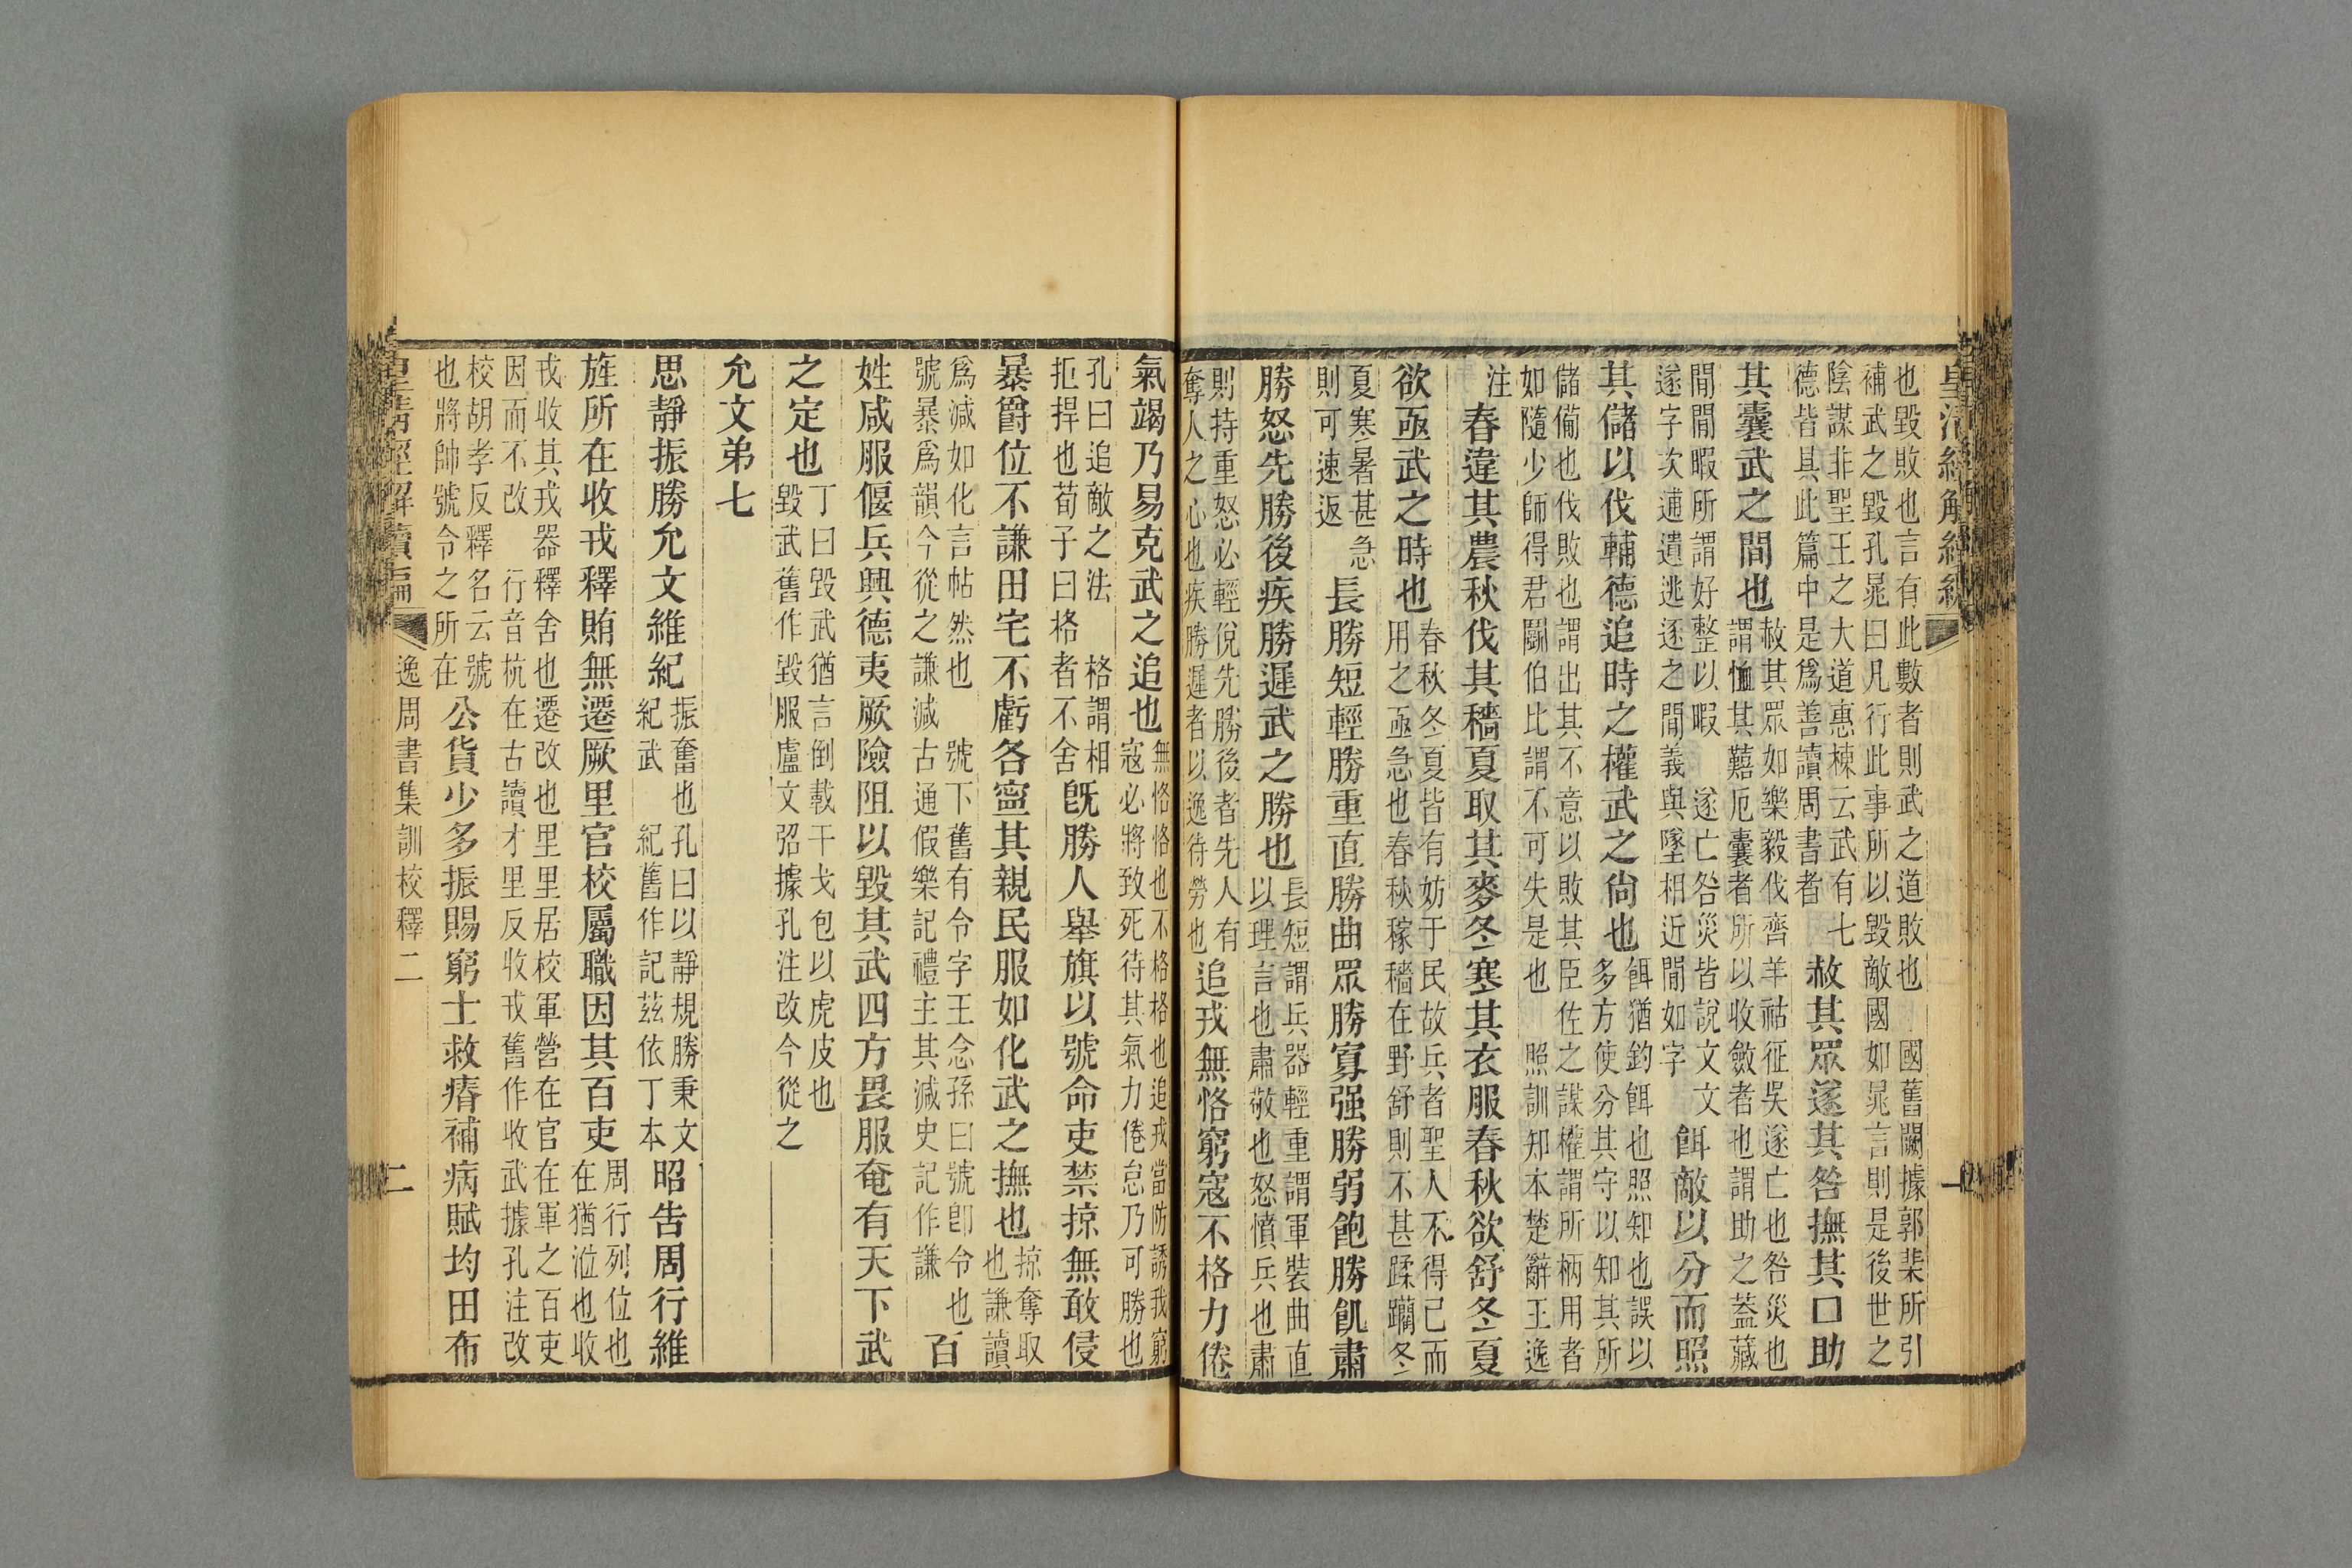 皇清經解續編 一
也毀敗也言有此數者則武之道敗也 國舊闕據郭棐所引
補武之毀孔晁曰凡行此事所以毀敵國如晁言則是後世之
陰謀非聖王之大道惠棟云武有七
德皆具此篇中是爲善讀周書者
赦其眾遂其咎撫其□助
其囊武之間也
赦其眾如樂毅伐齊羊祜征吳遂亡也咎災也
謂恤其囏厄囊者所以收斂者也謂助之蓋藏
閒閒暇所謂好整以暇 遂亡咎災皆說文文
遂字次逋遺逃逐之閒義與墜相近閒如字
餌敵以分而照
其儲以伐輔德追時之權武之尚也
餌猶釣餌也照知也誤以
多方使分其守以知其所
儲備也伐敗也謂出其不意以敗其臣佐之謀權謂所柄用者
如隨少師得君鬭伯比謂不可失是也 照訓知本楚辭王逸
注
春違其農秋伐其穡夏取其麥冬寒其衣服春秋欲舒冬夏
欲亟武之時也
春秋冬夏皆有妨于民故兵者聖人不得已而
用之亟急也春秋稼穡在野舒則不甚蹂躪冬
夏寒暑甚急
則可速返
長勝短輕勝重直勝曲眾勝寡强勝弱飽勝飢肅
勝怒先勝後疾勝遲武之勝也
長短謂兵器輕重謂軍裝曲直
以理言也肅敬也怒憤兵也肅
則持重怒必輕侻先勝後者先人有
奪人之心也疾勝遲者以逸待勞也
追戎無恪窮寇不格力倦
氣竭乃易克武之追也
無恪恪也不格格也追戎當防誘我窮
寇必將致死待其氣力倦怠乃可勝也
孔曰追敵之法 格謂相
拒捍也荀子曰格者不舍
旣勝人舉旗以號命吏禁掠無敢侵
暴爵位不謙田宅不虧各寍其親民服如化武之撫也
掠奪取
也謙讀
爲減如化言帖然也 號下舊有令字王念孫曰號卽令也
號暴爲韻今從之謙減古通假樂記禮主其減史記作謙
百
姓咸服偃兵興德夷厥險阻以毀其武四方畏服奄有天下武
之定也
丁曰毀武猶言倒載干戈包以虎皮也
毀武舊作毀服盧文弨據孔注改今從之
允文弟七
思靜振勝允文維紀
振奮也孔曰以靜規勝秉文
紀武 紀舊作記茲依丁本
昭告周行維
旌所在收戎釋賄無遷厥里官校屬職因其百吏
周行列位也
在猶涖也收
戎收其戎器釋舍也遷改也里里居校軍營在官在軍之百吏
因而不改 行音杭在古讀才里反收戎舊作收武據孔注改
校胡孝反釋名云號
也將帥號令之所在
公貨少多振賜窮士救瘠補病賦均田布
皇清經解續編 逸周書集訓校釋二 二